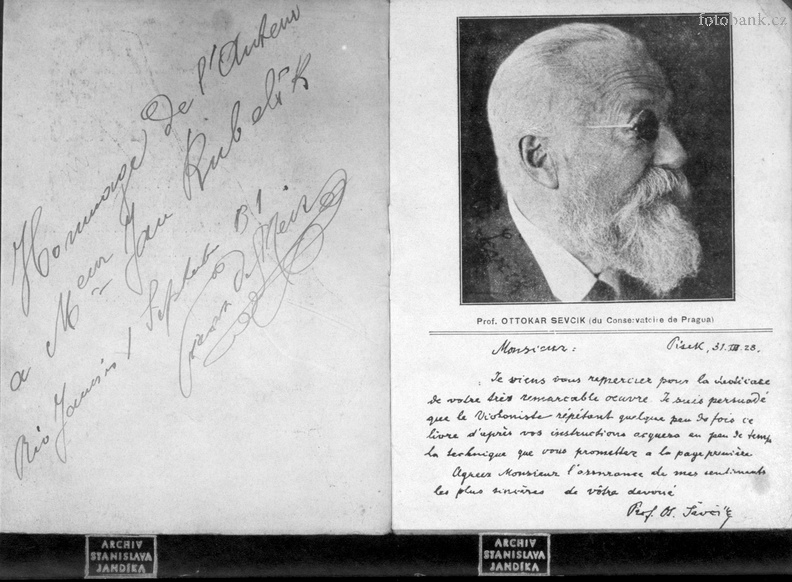 Hommage de l'Auteur
a Meur Jan Kubelik
Rio Janeiro 1 Septembre 31.
fotobank.cz
Prof. OTTOKAR SEVCIK (du Conservatoire de Pragua)
Monsieur:
Pisek, 31.III.28.
Je viens vous remercier pour la dedicace
de votre très remarcable oeuvre. Je suis persuadé
que le Violoniste répétant quelque peu de fois ce
livre d'après vos instructions acquera en peu de temps
la technique que vous promettez a la page première
Agreez Monsieur l'assurance de mes sentiments
les plus sincères de vôtre devoué
Prof. O. Ševčík
ARCHIV
STANISLAVA
JANDÍKA
ARCHIV
STANISLAVA
JANDÍKA